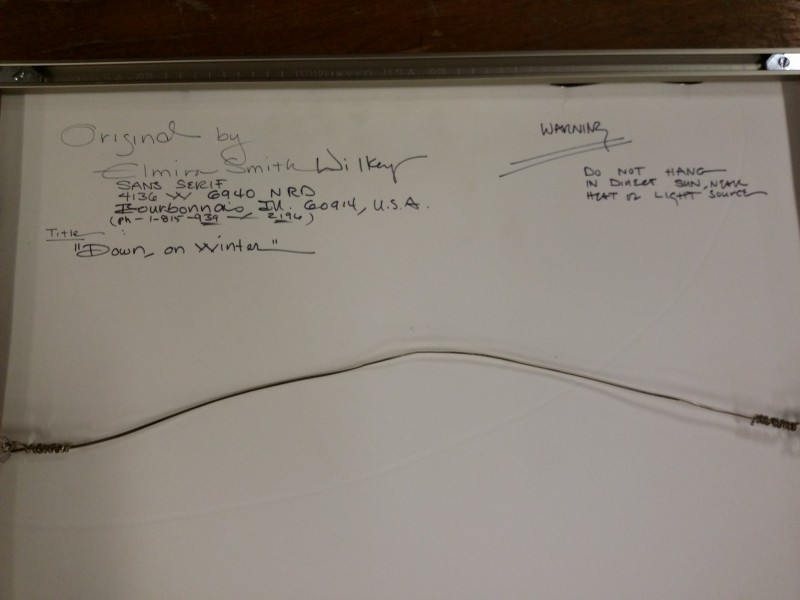 Original by
Elmira Smith Wilkey
SANS SERIF
4136 W 6940 N RD
Bourbonnais Ill. 60914, U.S.A.
(ph-1-815-939-2196)
Title:
"Down, on Winter"
WARNING
DO NOT HANG
IN DIRECT SUN, NEAR
HEAT or LIGHT SOURCE